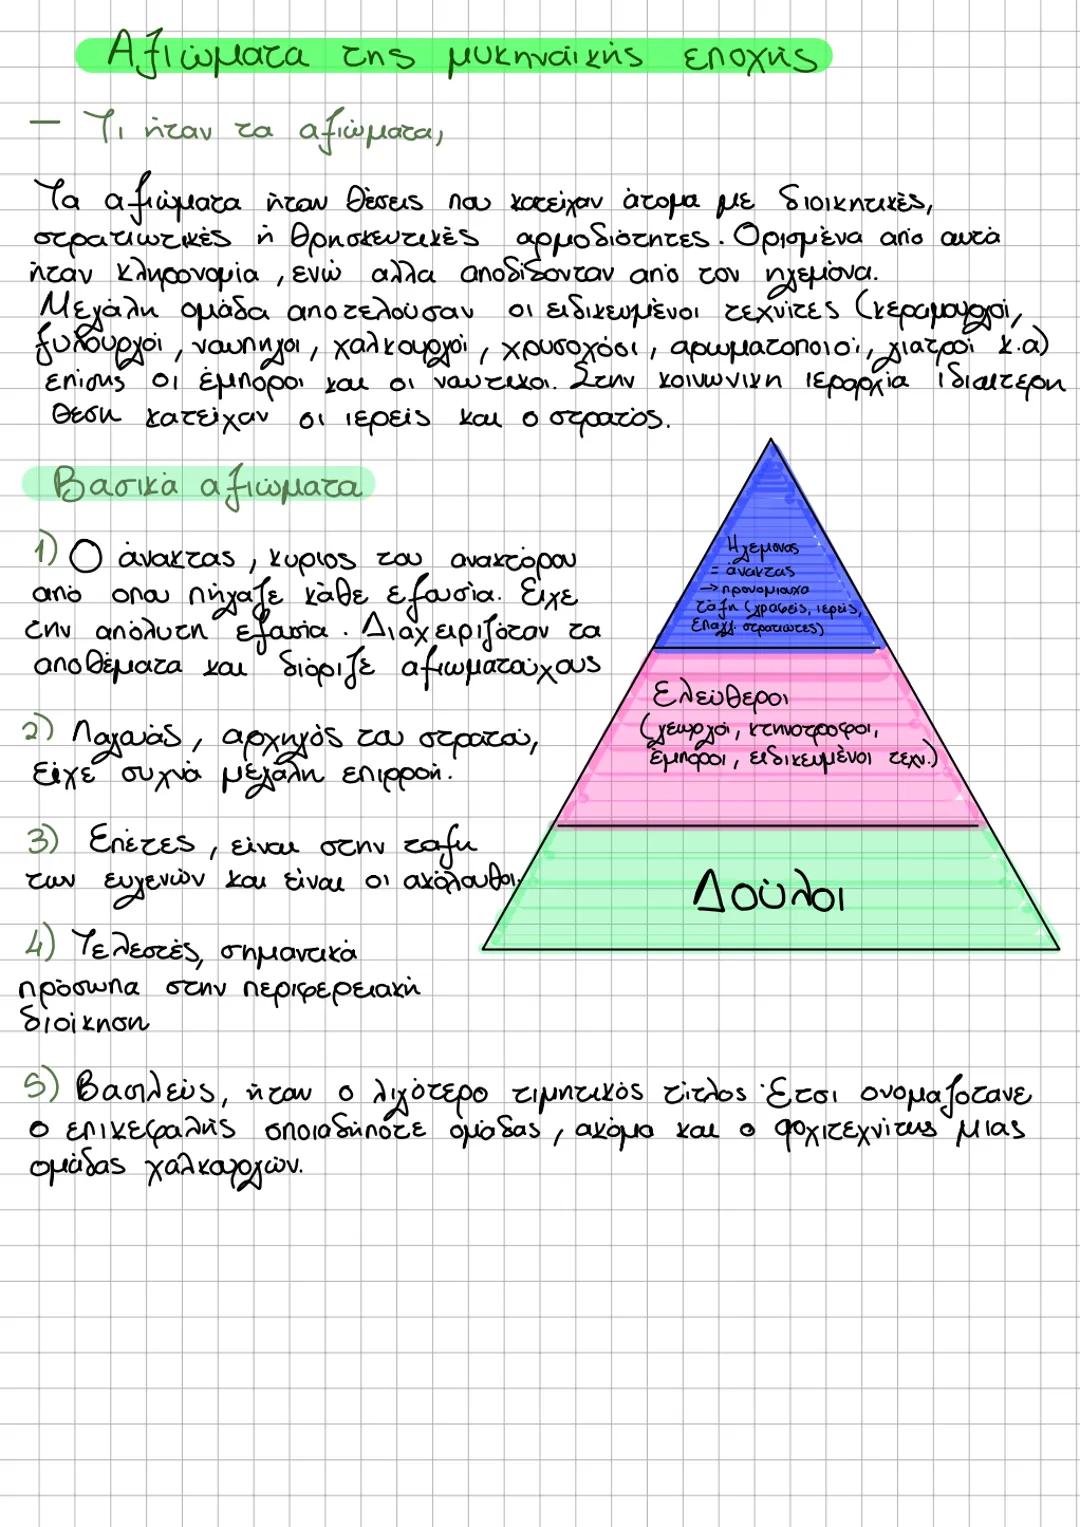 Αξιώματα της μυκηναϊκής εποχής
— Τι ήταν τα αξιώματα;
Τα αξιώματα ήταν θέσεις που κατείχαν άτομα με διοικητικές,
στρατιωτικές ή θρησκευτικές αρμοδιότητες. Ορισμένα από αυτά
ήταν κληρονομία, ενώ αλλα αποδίδονταν από τον ηγεμόνα.
Μεγάλη ομάδα αποτελούσαν οι ειδικευμένοι τεχνίτες (κεραμουργοί,
ξυλουργοί, ναυπηγοι, χαλκουργοί, χρυσοχόοι, αρωματοποιοί, γιατροί κ.α)
επίσης οι έμποροι και οι ναυτικοι. Στην κοινωνικη ιεραρχία ιδιαίτερη
θέση κατείχαν οι ιερείς και ο στρατός.
Βασικά αξιώματα
1) Ο άνακτας, κυριος του ανακτόρου
από οπου πήγαζε κάθε εξουσία. Είχε
την απόλυτη εξουσία. Διαχειριζόταν τα
αποθέματα και διόριζε αξιωματούχους
2) Λαγαυάς, αρχηγός του στρατού,
είχε συχνά μεγάλη επιρροή.
3) Επέτες, είναι στην ταξη
των ευγενών και είναι οι ακόλουθοι.
4) Τελεστές, σημαντικά
πρόσωπα στην περιφερειακή
διοίκηση
5) Βασιλεύς, ήταν ο λιγότερο τιμητικός τίτλος. Έτσι ονομαζότανε
ο επικεφαλής οποιαδήποτε ομάδας, ακόμα και ο αρχιτεχνίτης μιας
ομάδας χαλκουργών.
Ηγεμονας
= άνακτας
→ προνομιουχα
τάξη (γραφείς, ιερείς,
επαγγ. στρατιώτες)
Ελεύθεροι
(γεωργοί, κτηνοτρόφοι,
έμποροι, ειδικευμένοι τεχν.)
Δούλοι